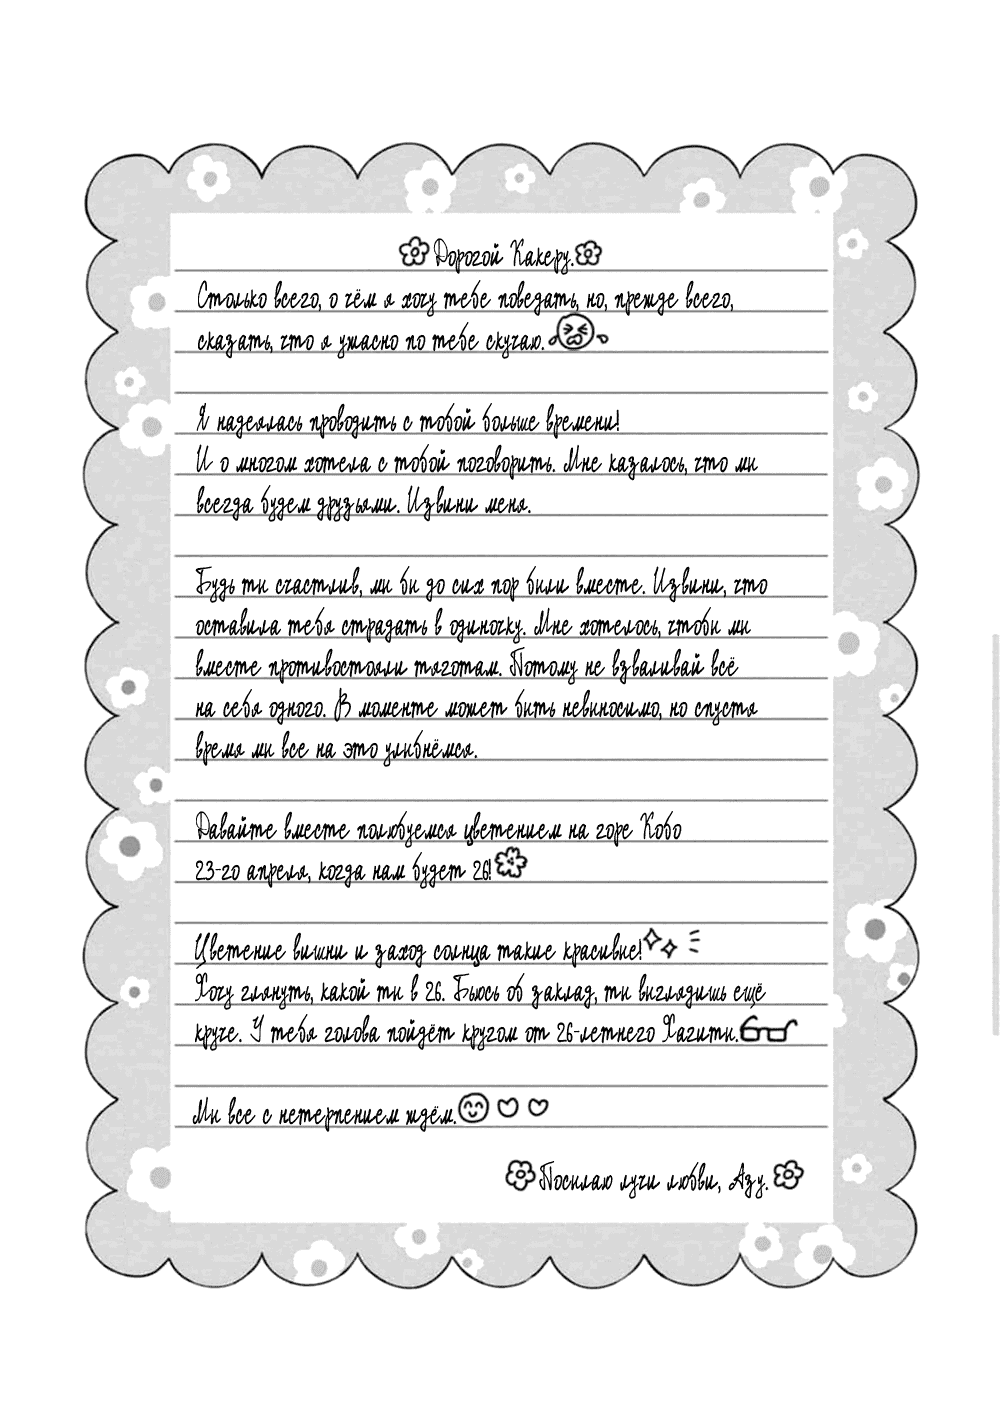 Дорогой Какеру.
Столько всего, о чём я хочу тебе поведать, но, прежде всего,
сказать, что я ужасно по тебе скучаю.
Я надеялась проводить с тобой больше времени!
И о многом хотела с тобой поговорить. Мне казалось, что мы
всегда будем друзьями. Извини меня.
Будь ты счастлив, мы бы до сих пор были вместе. Извини, что
оставила тебя страдать в одиночку. Мне хотелось, чтобы мы
вместе противостояли тяготам. Потому не взваливай всё
на себя одного. В моменте может быть невыносимо, но спустя
время мы все на это улыбнёмся.
Давайте вместе полюбуемся цветением на горе Кобо
23-го апреля, когда нам будет 26!
Цветение вишни и заход солнца такие красивые!
Хочу глянуть, какой ты в 26. Бьюсь об заклад, ты выглядишь ещё
круче. У тебя голова пойдёт кругом от 26-летнего Хагиты.
Мы все с нетерпением ждём.
Посылаю лучи любви, Азу.